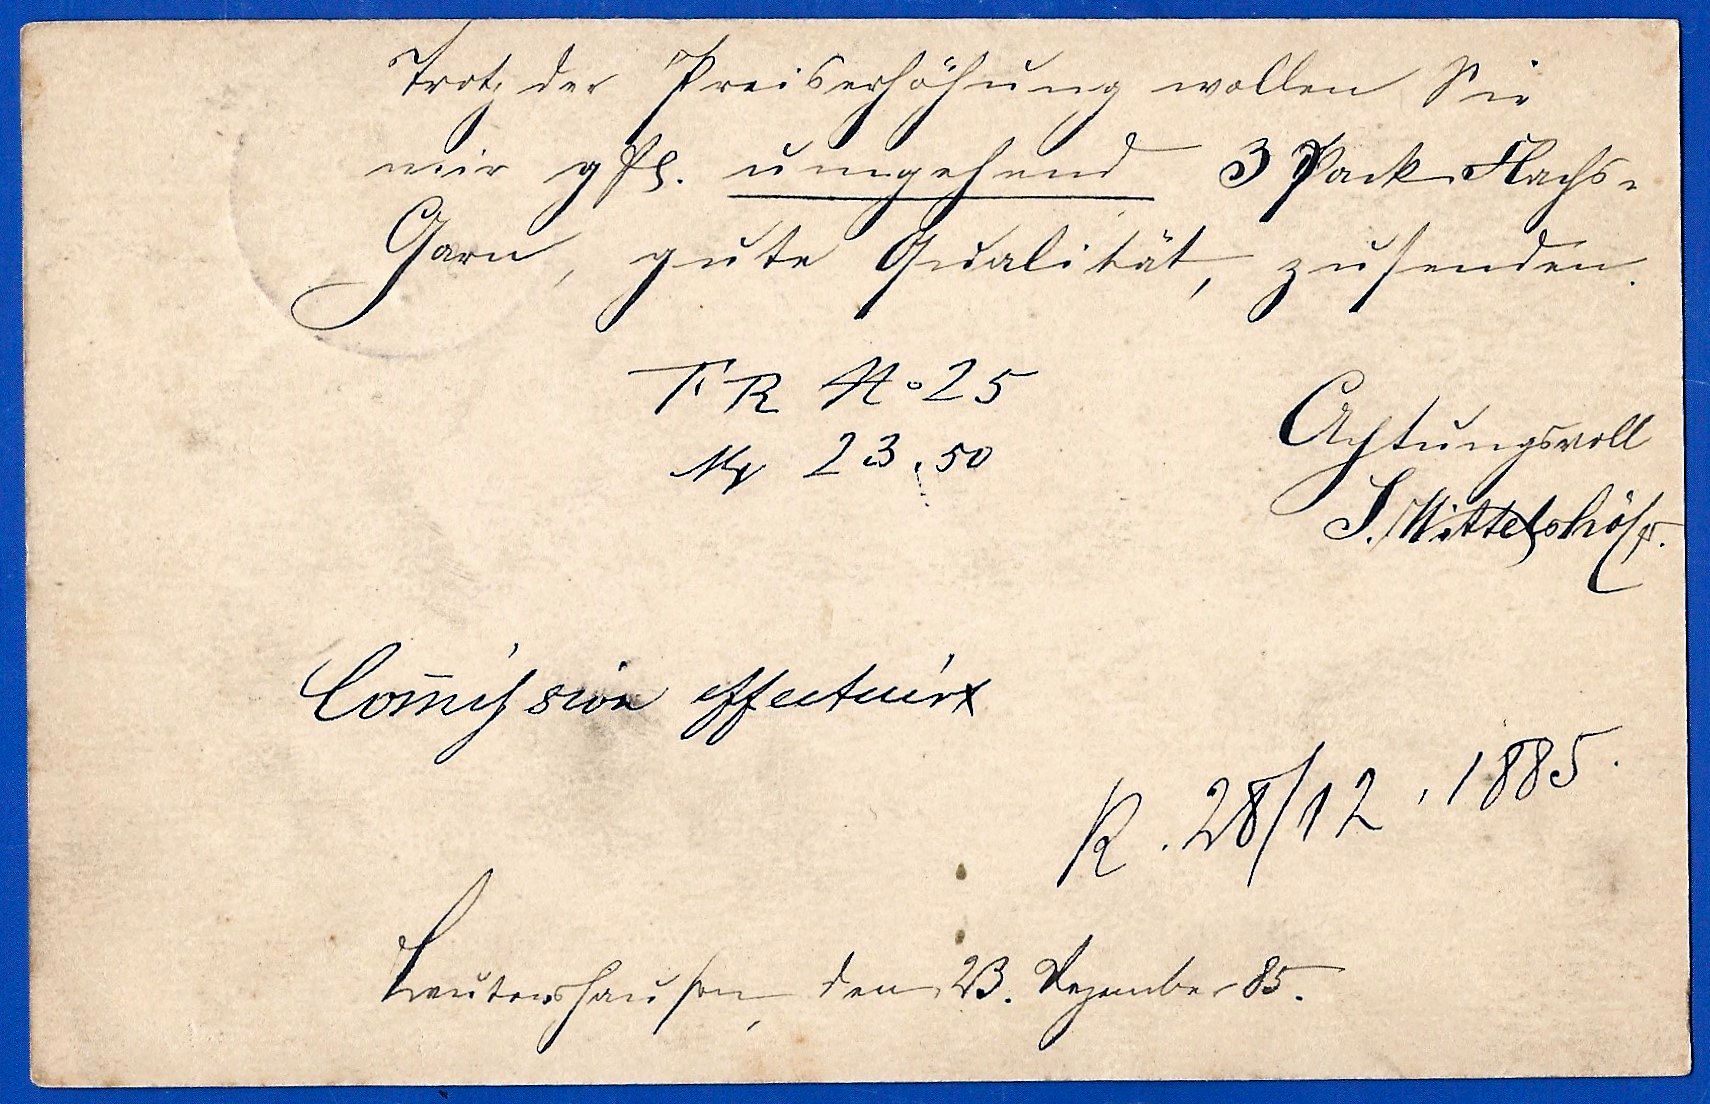 Trotz der Preiserhöhung wollen Sie
mir gfl. umgehend 3 Pack Flachs-
Garn, gute Qualität, zusenden.
F. R No 25
Mk 23.50
Achtungsvoll
S. Mittelshöfr.
Com̄ission effectuirt
R. 28/12. 1885.
Leutershausen, den 23. Dezember 85.